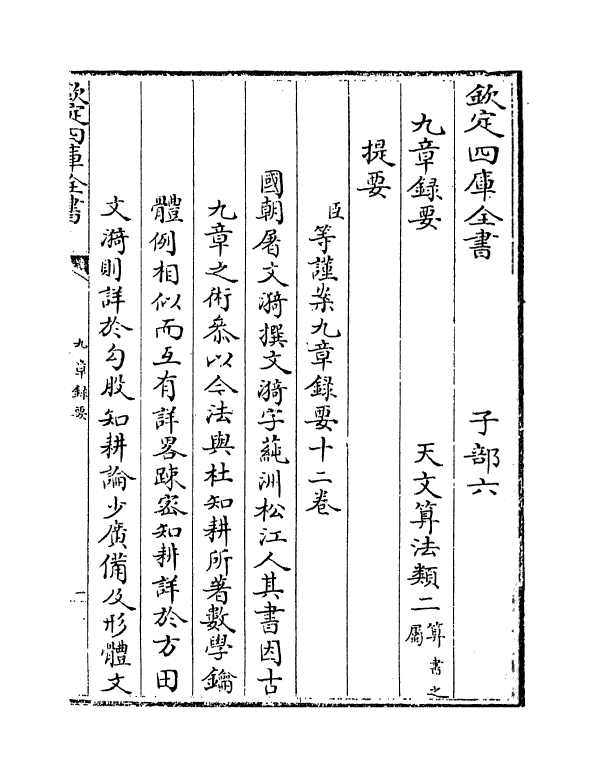 欽定四庫全書　子部六
九章録要　天文算法類二算書之屬
提要
臣等謹案九章録要十二卷
國朝屠文漪撰文漪字蒓洲松江人其書因古
九章之術叅以今法與杜知耕所著數學鑰
體例相似而互有詳畧踈宻知耕詳於方田
文漪則詳於勾股知耕論少廣備及形體文
欽定四庫全書
九章録要